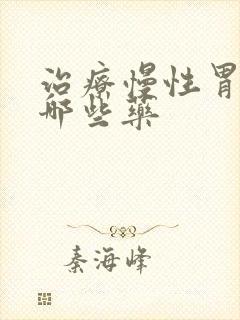 治療慢性胃
哪些藥
秦海峰